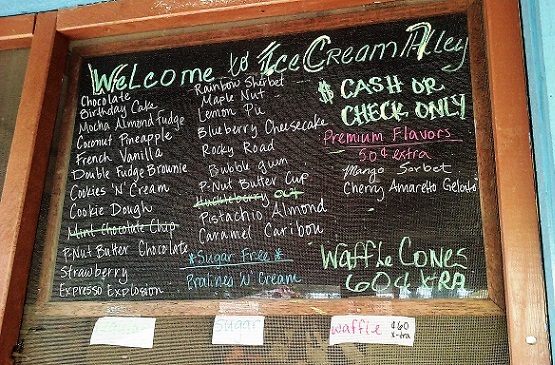 Welcome to Ice Cream Alley
Chocolate
Birthday Cake
Mocha Almond Fudge
Coconut Pineapple
French Vanilla
Double Fudge Brownie
Cookies 'N' Cream
Cookie Dough
Mint Chocolate Chip
P-Nut Butter Chocolate
Strawberry
Expresso Explosion
Rainbow Sherbet
Maple Nut
Lemon Pie
Blueberry Cheesecake
Rocky Road
Bubble gum
P-Nut Butter Cup
Huckleberry OUT
Pistachio Almond
Caramel Caribou
*Sugar Free*
Pralines 'N' Cream
$ CASH OR
CHECK ONLY
Premium Flavors
50¢ extra
Mango Sorbet
Cherry Amaretto Gelato
Waffle Cones
60¢ X-RA
Sugar
Waffle ¢60
X-tra